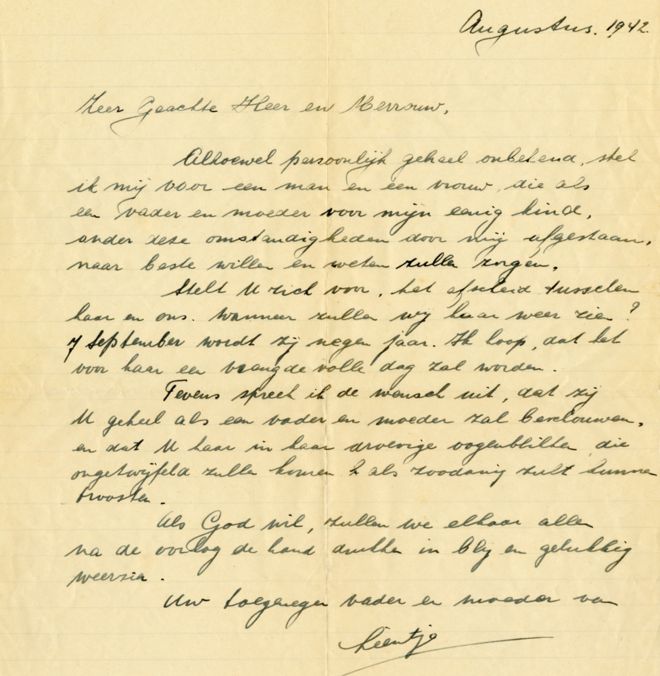 Augustus. 1942.
Zeer Geachte Heer en Mevrouw,
Alhoewel persoonlijk geheel onbekend, stel
ik mij voor een man en een vrouw, die als
een vader en moeder voor mijn eenig kind,
onder deze omstandigheden door mij afgestaan,
naar beste willen en weten zullen zorgen.
Stelt U zich voor, het afscheid tusschen
haar en ons. Wanneer zullen wij haar weer zien?
7 September wordt zij negen jaar. Ik hoop, dat het
voor haar een vreugdevolle dag zal worden.
Tevens spreek ik de wensch uit, dat zij
U geheel als een vader en moeder zal beschouwen,
en dat U haar in haar droevige oogenblikken, die
ongetwijfeld zullen komen als zoodanig zult kunnen
troosten.
Als God wil, zullen we elkaar allen
na de oorlog de hand drukken in blij en gelukkig
weerzien.
Uw toegenegen vader en moeder van
Leentje